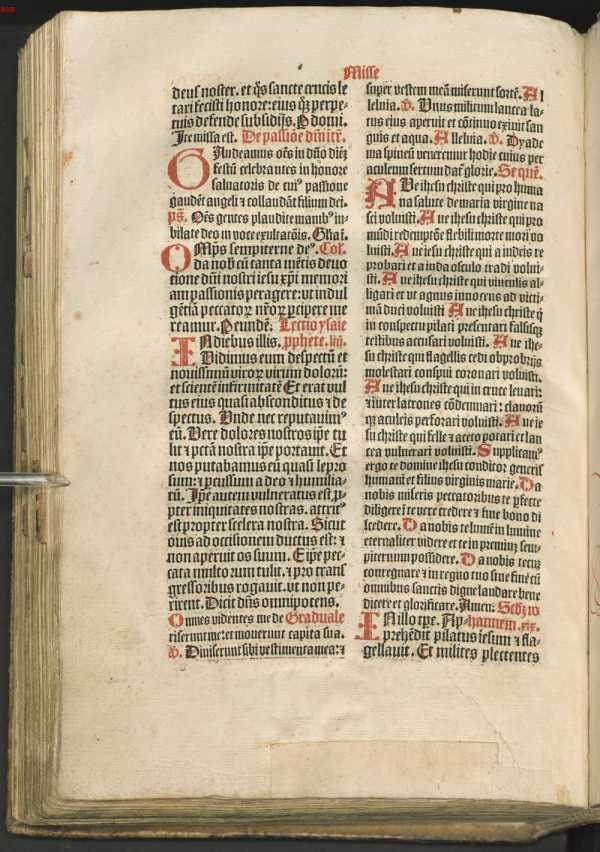 Misse
deus noster. et q̄s sancte crucis le
tari fecisti honore: eius q̄z perpe-
tuis defende subsidijs. P domi.
Ite missa est. De passiōe dn̄i
GAudeamus oēs in dn̄o diē
festū celebrantes in honore
saluatoris de cuiꝰ passione
gaudēt angeli ⁊ collaudāt filium dei.
ps. Oēs gentes plaudite manibꝰ iu-
bilate deo in voce exultatōis. Gl̄ia
OMp̄s sempiterne deꝰ. Coll.
da nob̄ cū tanta mētis deuo
tione dn̄i nostri iesu xp̄i memori
am passionis peragere: vt indul
gētiā peccatoꝝ nr̄oꝝ ꝑcipere me
reamur. P eundē. Lectio ysaie
IN diebus illis. ꝓphete. liij.
Vidimus eum despectū et
nouissimū viroꝝ virum doloꝝ:
et scientē infirmitatē Et erat vul
tus eius quasi absconditus ⁊ de
spectus. Vnde nec reputauimꝰ
eū. Vere dolores nostros ip̄e tu
lit ⁊ pctā nostra ip̄e portauit. Et
nos putabamus eū quasi lepro
sum: ⁊ ꝑcussum a deo ⁊ humilia-
tū. Ip̄e autem vulneratus est ꝓ-
pter iniquitates nostras. attritꝰ
est propter scelera nostra. Sicut
ouis ad occisionem ductus est: ⁊
non aperuit os suum. Et ip̄e pec-
cata multorum tulit. ⁊ pro trans
gressoribus rogauit. vt non pe-
rirent. Dicit dn̄s omnipotens.
Omnes videntes me de Graduale
riserunt me: et mouerunt capita sua.
v. Diuiserunt sibi vestimenta mea: ⁊
super vestem meā miserunt sortē. Al
leluia. v. Vnus militum lancea la-
tus eius aperuit et cōtinuo exiuit san
guis et aqua. Alleluia. v. Dyade
ma spineū veneremur hodie cuius per
aculeum sertum daē glorie. Sequē.
AVe ihesu christe qui pro huma
na salute de maria virgine na
sci voluisti. Aue ihesu christe qui pro
mūdi redemptōe flebili morte mori vo
luisti. Aue iesu christe qui a iudeis re
probari et a iuda osculo tradi volui-
sti. Aue ihesu christe qui vinculis al-
ligari et vt agnus innocens ad victi-
mā duci voluisti Aue ihesu christe q̇
in conspectu pilati presentari falsisq̄
testibus accusari voluisti. Aue ihe-
su christe qui flagellis cedi obprobrijs
molestari conspui coronari voluisti.
Aue ihesu christe qui in cruce leuari:
⁊ inter latrones cōdemnari: clauorū
q̄ aculeis perforari voluisti. Aue ie
su christe qui felle ⁊ aceto potari et lan
cea vulnerari voluisti. Supplicamꝰ
ergo te domine ihesu conditor generis
humani et filius virginis marie. Da
nobis miseris peccatoribus te ꝑfecte
diligere ⁊ te vere credere ⁊ fine bono di
scedere. Da nobis te lumē in lumine
eternaliter videre et te in premiuȝ sem
piternum possidere. Da nobis tecuȝ
conregnare ⁊ in regno tuo sine fine cū
omnibus sanctis digne laudare bene
dicere et glorificare. Amen. Scd̄ȝ io
IN illo tp̄e. Ap- hannem. xix.
prehēdit pilatus iesum ⁊ fla-
gellauit. Et milites plectentes